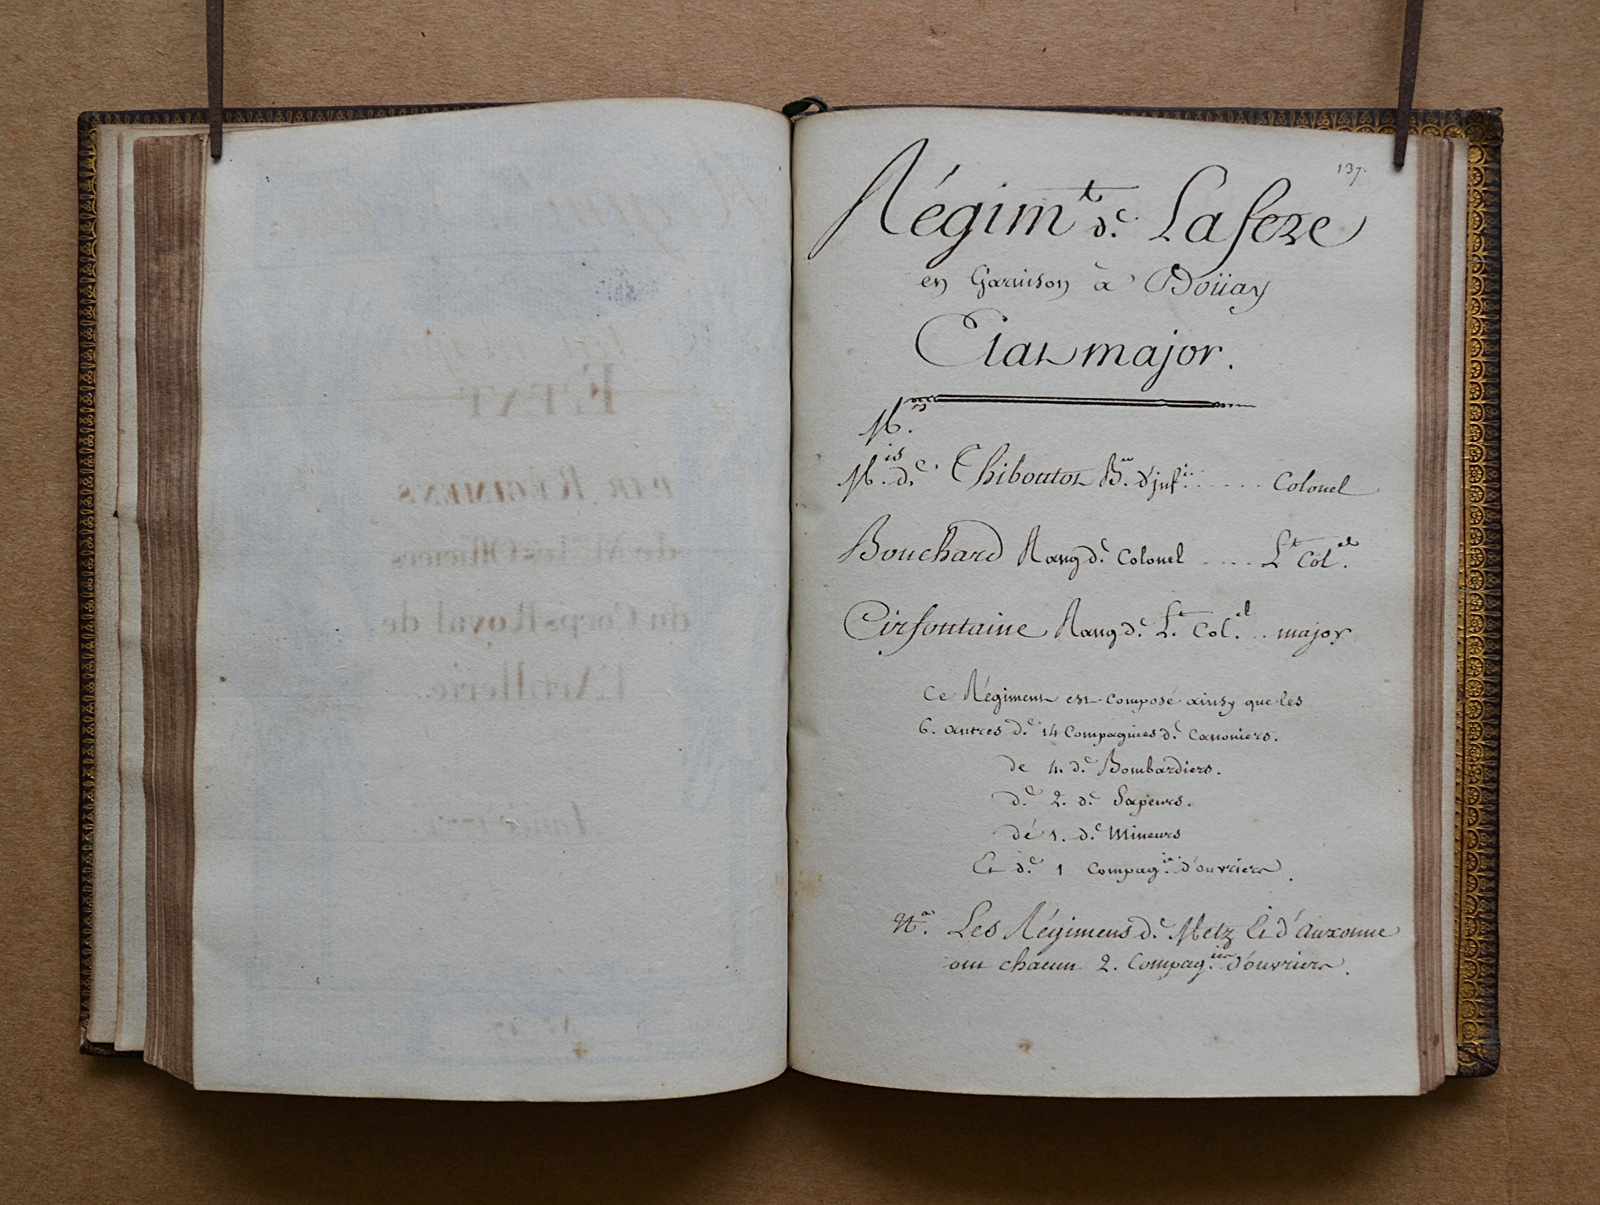 137.
Régim.t de Lafere
en Garnison à Doüay
Etat major.
M.
M.is de Thiboutot B.er d'inf.ie ..... Colonel
Bouchard Rang de Colonel .... L.t Col.el
Cirfontaine Rang de L.t Col.el .. major
Ce Régiment est composé ainsy que les
6. autres de 14 Compagnies de Canoniers.
de 4. de Bombardiers.
de 2. de Sapeurs.
de 1. de Mineurs
Et de 1 Compag.ie d'ouvriers.
N.a Les Régimens de Metz Et d'Auxonne
ont chacun 2. Compag.ies d'ouvriers.
ETAT
PAR RÉGIMENS
de M.rs les Officiers
du Corps Royal de
L'Artillerie.